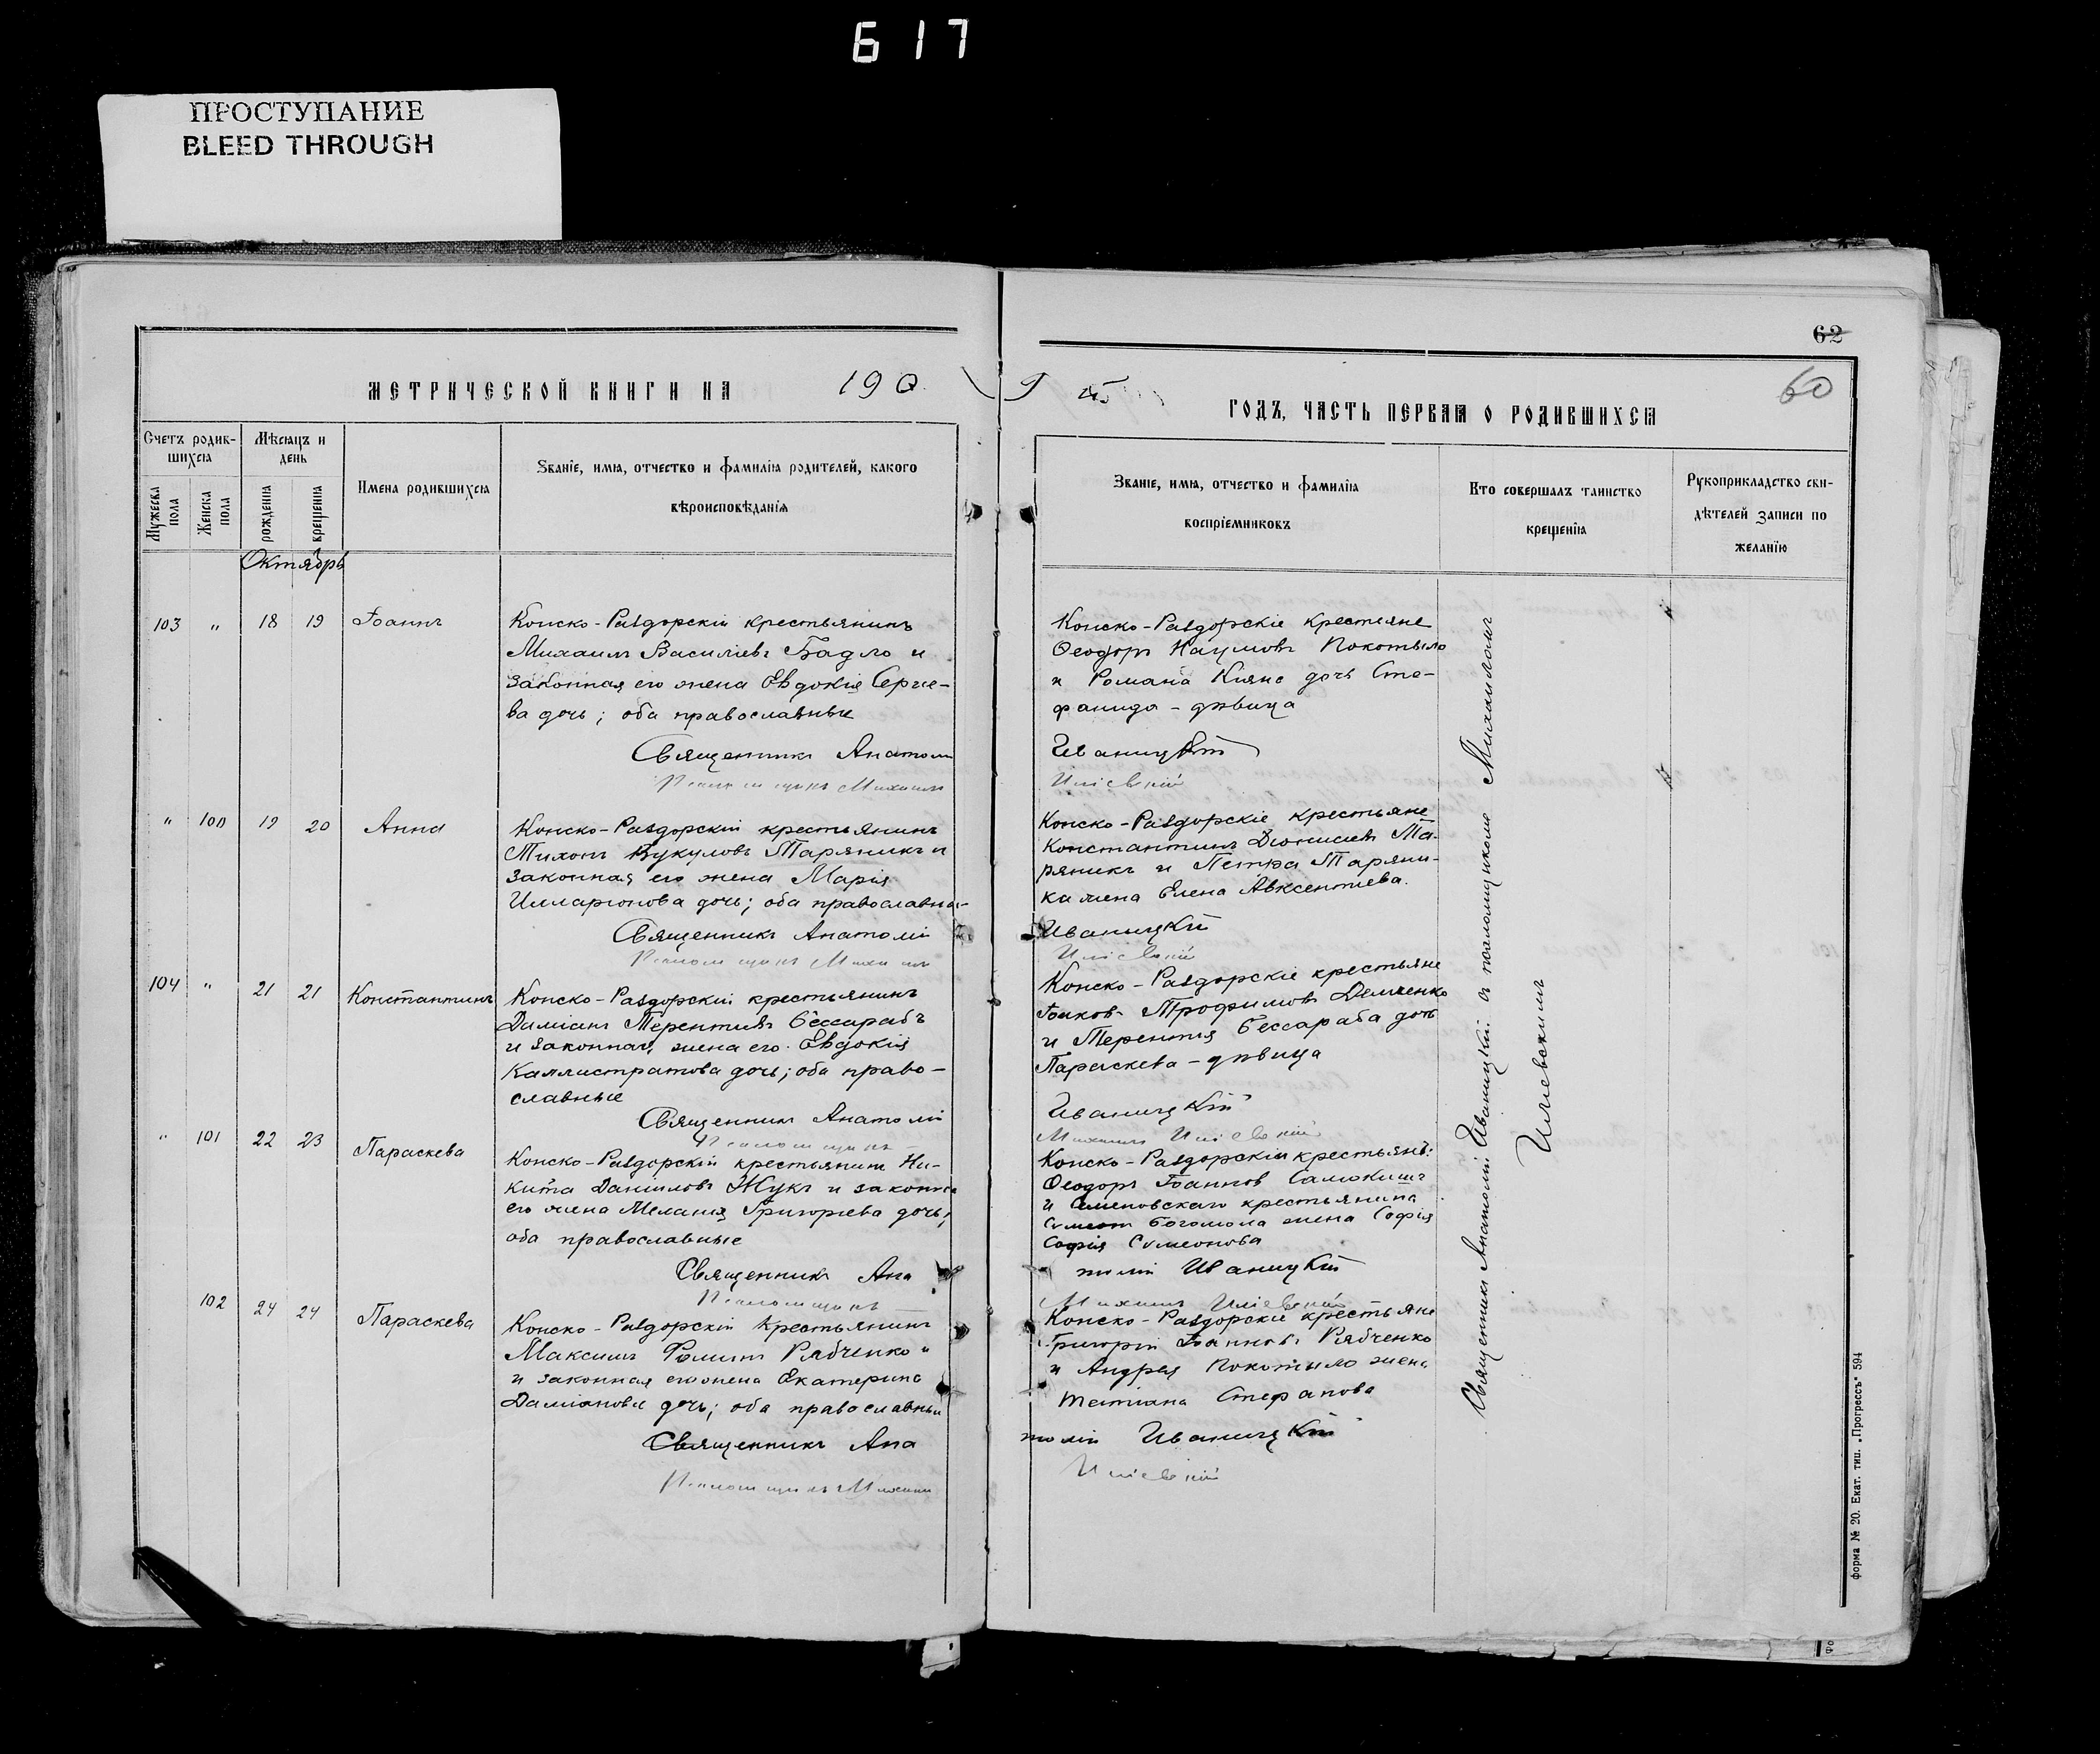 617
ПРОСТУПАНИЕ
BLEED THROUGH
62
60
МЕТРИЧЕСКОЙ КНИГИ НА 190
9 ГОДЪ, ЧАСТЬ ПЕРВАЯ О РОДИВШИХСЯ
Счетъ родив-
шихся
Мужеска пола
Женска пола
Мѣсяцъ и
день
рожденія
крещенія
Имена родившихся
Званіе, имя, отчество и фамилія родителей, какого
вѣроисповѣданія
Званіе, имя, отчество и фамилія
воспріемниковъ
Кто совершалъ таинство
крещенія
Рукоприкладство сви-
дѣтелей записи по
желанію
Октябрь
103 " 18 19 Іоаннъ
Конско-Раздорскій крестьянинъ
Михаилъ Васильевъ Бадло и
законная его жена Евдокія Сергіе-
ва дочь; оба православные
Конско-Раздорскіе крестьяне
Ѳеодоръ Наумовъ Покотыло
и Романа Кіяно дочь Сте-
фанида - дѣвица
Священникъ Анатолій Иваницкій
Псаломщикъ Михаилъ Илієвскій
" 100 19 20 Анна
Конско-Раздорскій крестьянинъ
Тихонъ Вукуловъ Тараникъ и
законная его жена Марія
Илларіонова дочь; оба православны-
Конско-Раздорскіе крестьяне
Константинъ Діонисіевъ Ма-
ряникъ и Петра Таряни-
ка жена Елена Авксентіева.
Священникъ Анатолій Иваницкій
Псаломщикъ Михаилъ Илієвскій
104 " 21 21 Константинъ
Конско-Раздорскій крестьянинъ
Даміанъ Терентіевъ Бессарабъ
и законная жена его Евдокія
Каллистратова дочь; оба право-
славные
Конско-Раздорскіе крестьяне
Іаковъ Трофимовъ Демченко
и Терентія Бессараба дочь
Параскева - дѣвица
Священникъ Анатолій Иваницкій
Псаломщикъ Михаилъ Илієвскій
" 101 22 23 Параскева
Конско-Раздорскій крестьянинъ Ни-
кита Даніиловъ Жукъ и законная
его жена Меланія Григорьева дочь;
оба православные
Конско-Раздорскій крестьянъ:
Ѳеодоръ Іоанновъ Самокишъ
и Семеновскаго крестьянина
Симеона Богомола жена Софія
Софія Симеонова
Священникъ Анатолій Иваницкій
Псаломщикъ Михаилъ Илієвскій
102 24 24 Параскева
Конско-Раздорскій крестьянинъ
Максимъ Фоминъ Рябченко и
и законная его жена Екатерина
Даміанова дочь; оба православные
Конско-Раздорскіе крестьяне
Григорій Іоанновъ Рябченко
и Андрея Покотыло жена
Татіана Стефанова
Священникъ Анатолій Иваницкій
Псаломщикъ Михаилъ Илієвскій
Священникъ Анатолій Иваницкій съ псаломщикомъ Михаиломъ
Илієвскимъ
Форма № 20. Екат. тип. „Прогрессъ“ 594